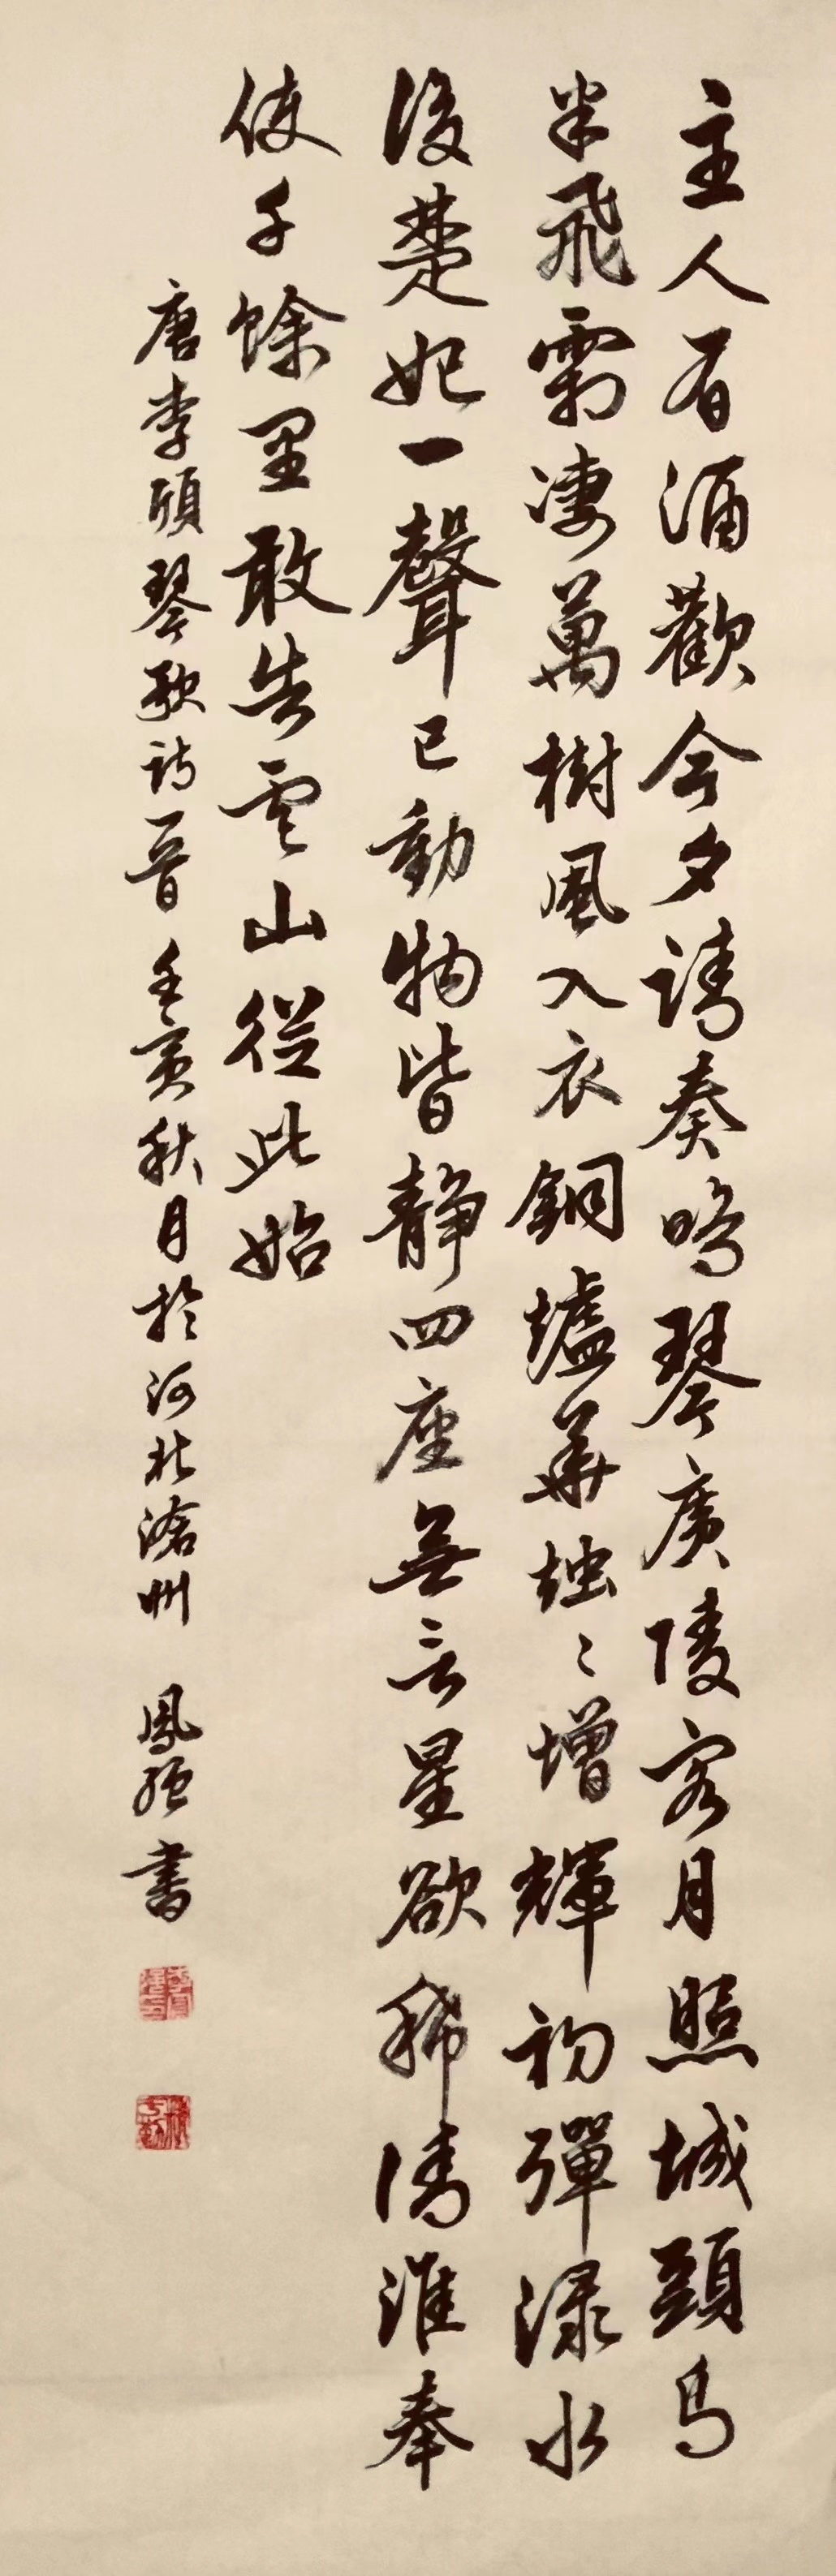 主人有酒歡今夕請奏鳴琴廣陵客月照城頭烏
半飛霜凄萬樹風入衣銅爐華燭〻增輝初彈淥水
後楚妃一聲已動物皆靜四座無言星欲稀清淮奉
使千餘里敢告雲山從此始
唐李頎琴歌詩一首 壬寅秋月於河北滄州 鳳強書